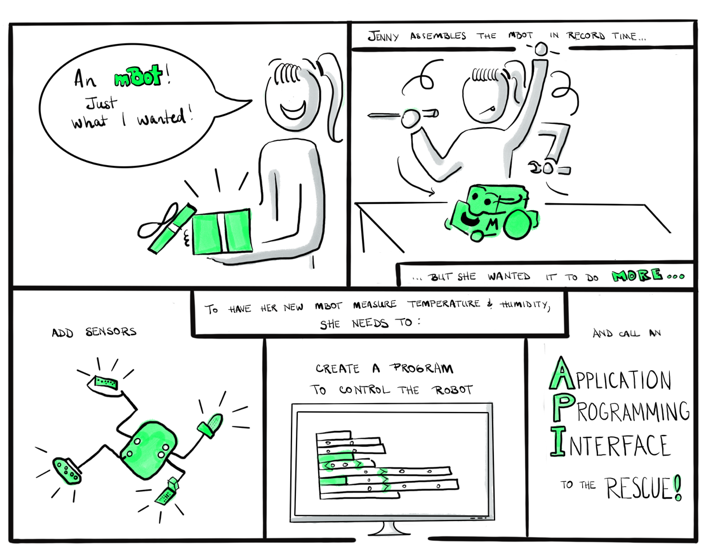 An mBot!
Just
what I wanted!
JENNY ASSEMBLES THE MBOT IN RECORD TIME...
M
... BUT SHE WANTED IT TO DO MORE...
TO HAVE HER NEW MBOT MEASURE TEMPERATURE & HUMIDITY,
SHE NEEDS TO:
ADD SENSORS
CREATE A PROGRAM
TO CONTROL THE ROBOT
AND CALL AN
APPLICATION
PROGRAMMING
INTERFACE
TO THE RESCUE!